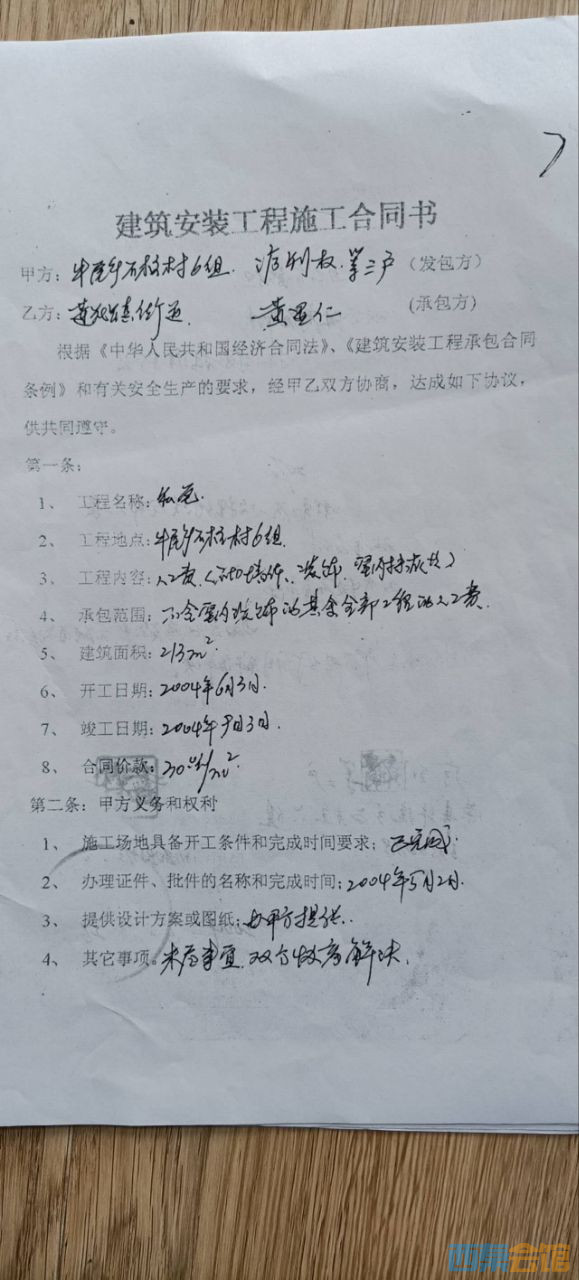 建筑安装工程施工合同书
甲方：牛尾乡石柱村6组. 权. 等三户（发包方）
乙方： 黄 仁 （承包方）
根据《中华人民共和国经济合同法》、《建筑安装工程承包合同
条例》和有关安全生产的要求，经甲乙双方协商，达成如下协议，
供共同遵守。
第一条：
1、 工程名称：私宅.
2、 工程地点：牛尾乡石柱村6组.
3、 工程内容：人工费
4、 承包范围：不含室内装饰的其余全部工程的人工费.
5、 建筑面积：213m².
6、 开工日期：2004年6月3日.
7、 竣工日期：2004年9月3日.
8、 合同价款：/m²
第二条：甲方义务和权利
1、 施工场地具备开工条件和完成时间要求；已完成.
2、 办理证件、批件的名称和完成时间：2004年5月2日.
3、 提供设计方案或图纸：由甲方提供.
4、 其它事项。未尽事宜.双方 解决.
西祠会馆